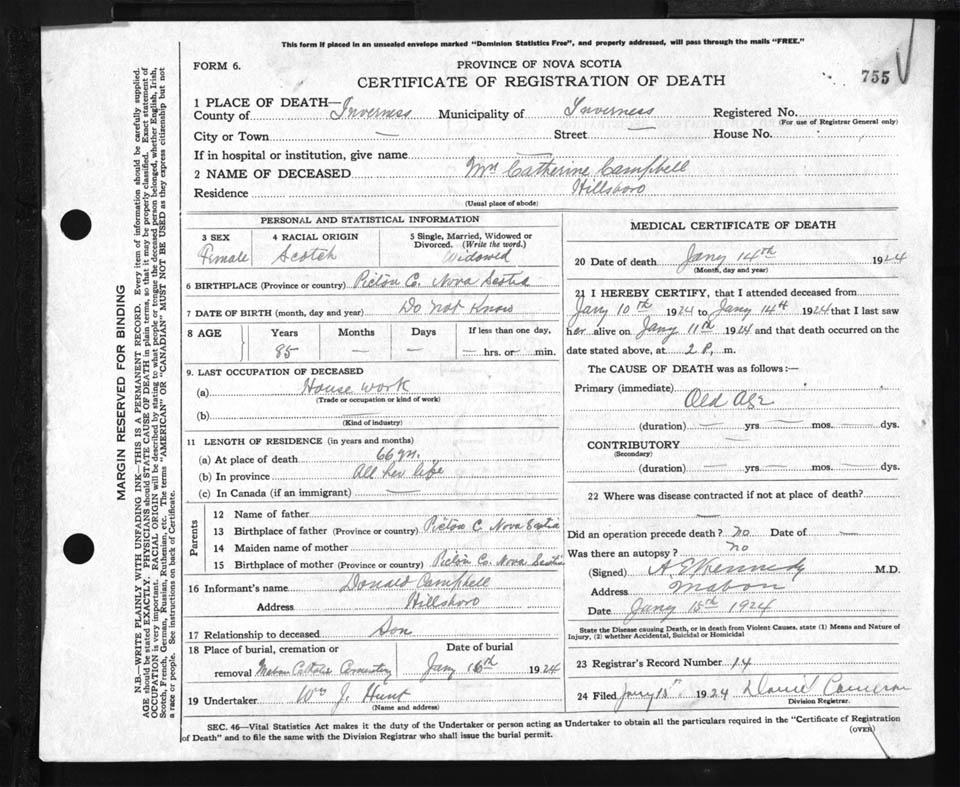 This form if placed in an unsealed envelope marked "Dominion Statistics Free", and properly addressed, will pass through the mails "FREE."
FORM 6.
PROVINCE OF NOVA SCOTIA
CERTIFICATE OF REGISTRATION OF DEATH
755
1 PLACE OF DEATH—
County of Inverness Municipality of Inverness Registered No.
(For use of Registrar General only)
City or Town — Street — House No.
If in hospital or institution, give name —
2 NAME OF DECEASED Mrs Catherine Campbell
Residence Hillsboro
(Usual place of abode)
PERSONAL AND STATISTICAL INFORMATION
3 SEX 4 RACIAL ORIGIN 5 Single, Married, Widowed or Divorced. (Write the word.)
Female Scotch Widowed
6 BIRTHPLACE (Province or country) Picton C. Nova Scotia
7 DATE OF BIRTH (month, day and year) Do not Know
8 AGE Years Months Days If less than one day,
85 — — — hrs. or — min.
9. LAST OCCUPATION OF DECEASED
(a) House work
(Trade or occupation or kind of work)
(b) —
(Kind of industry)
11 LENGTH OF RESIDENCE (in years and months)
(a) At place of death 66 yrs.
(b) In province All her life
(c) In Canada (if an immigrant) —
Parents
12 Name of father
13 Birthplace of father (Province or country) Picton C. Nova Scotia
14 Maiden name of mother
15 Birthplace of mother (Province or country) Picton Co. Nova Scotia
16 Informant's name Donald Campbell
Address Hillsboro
17 Relationship to deceased Son
18 Place of burial, cremation or removal Date of burial
Mabou Catholic Cementery Jany 16th 1924
19 Undertaker Wm J. Hunt
(Name and address)
MEDICAL CERTIFICATE OF DEATH
20 Date of death Jany 14th 1924
(Month, day and year)
21 I HEREBY CERTIFY, that I attended deceased from
Jany 10th 1924 to Jany 14th 1924 that I last saw
her alive on Jany 11th 1924 and that death occurred on the
date stated above, at 2 P. m.
The CAUSE OF DEATH was as follows:—
Primary (immediate)
Old Age
(duration) — yrs — mos. — dys.
CONTRIBUTORY —
(Secondary)
(duration) — yrs — mos. — dys.
22 Where was disease contracted if not at place of death?
—
Did an operation precede death? no Date of —
Was there an autopsy? no
(Signed) A E Kennedy M.D.
Address Mabou
Date Jany 15th 1924
State the Disease causing Death, or in death from Violent Causes, state (1) Means and Nature of
Injury, (2) whether Accidental, Suicidal or Homicidal
23 Registrar's Record Number 14
24 Filed Jany 15th 1924 Daniel Cameron
Division Registrar.
SEC. 46—Vital Statistics Act makes it the duty of the Undertaker or person acting as Undertaker to obtain all the particulars required in the "Certificate of Registration
of Death" and to file the same with the Division Registrar who shall issue the burial permit.
(OVER)
MARGIN RESERVED FOR BINDING
N.B.—WRITE PLAINLY WITH UNFADING INK—THIS IS A PERMANENT RECORD. Every item of information should be carefully supplied.
AGE should be stated EXACTLY. PHYSICIANS should STATE CAUSE OF DEATH in plain terms, so that it may be properly classified. Exact statement of
OCCUPATION is very important. RACIAL ORIGIN will be described by stating to what people or tongue the deceased person belonged, whether English, Irish,
Scotch, French, German, Russian, Ruthenian, etc. The terms "AMERICAN" or "CANADIAN" MUST NOT BE USED as they express citizenship but not
a race or people. See instructions on back of Certificate.